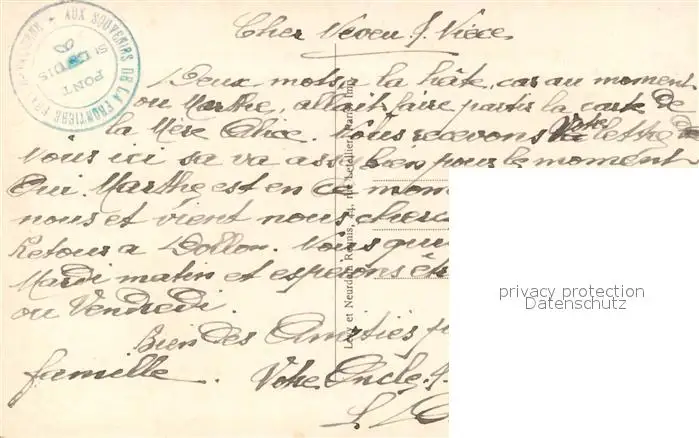 Cher Neveu & Nièce
AUX SOUVENIRS DE LA FRONTIERE
St LOUIS
PONT
Deux mots a la hâte, car au moment
ou Marthe, allait faire partir la carte de
la Mère Alice. Nous recevons Votre lettre de
Nous ici sa va assez bien pour le moment
Oui Marthe est en ce mom
nous et vient nous cherc
Retour a Dollon. Nous qui
Mardi matin et esperons êt
ou Vendredi.
Bien des Amitiés p
famille. Votre Oncle
Lévy et Neurdein Réunis, 44, rue Letellier, Paris Imp.
privacy protection
Datenschutz